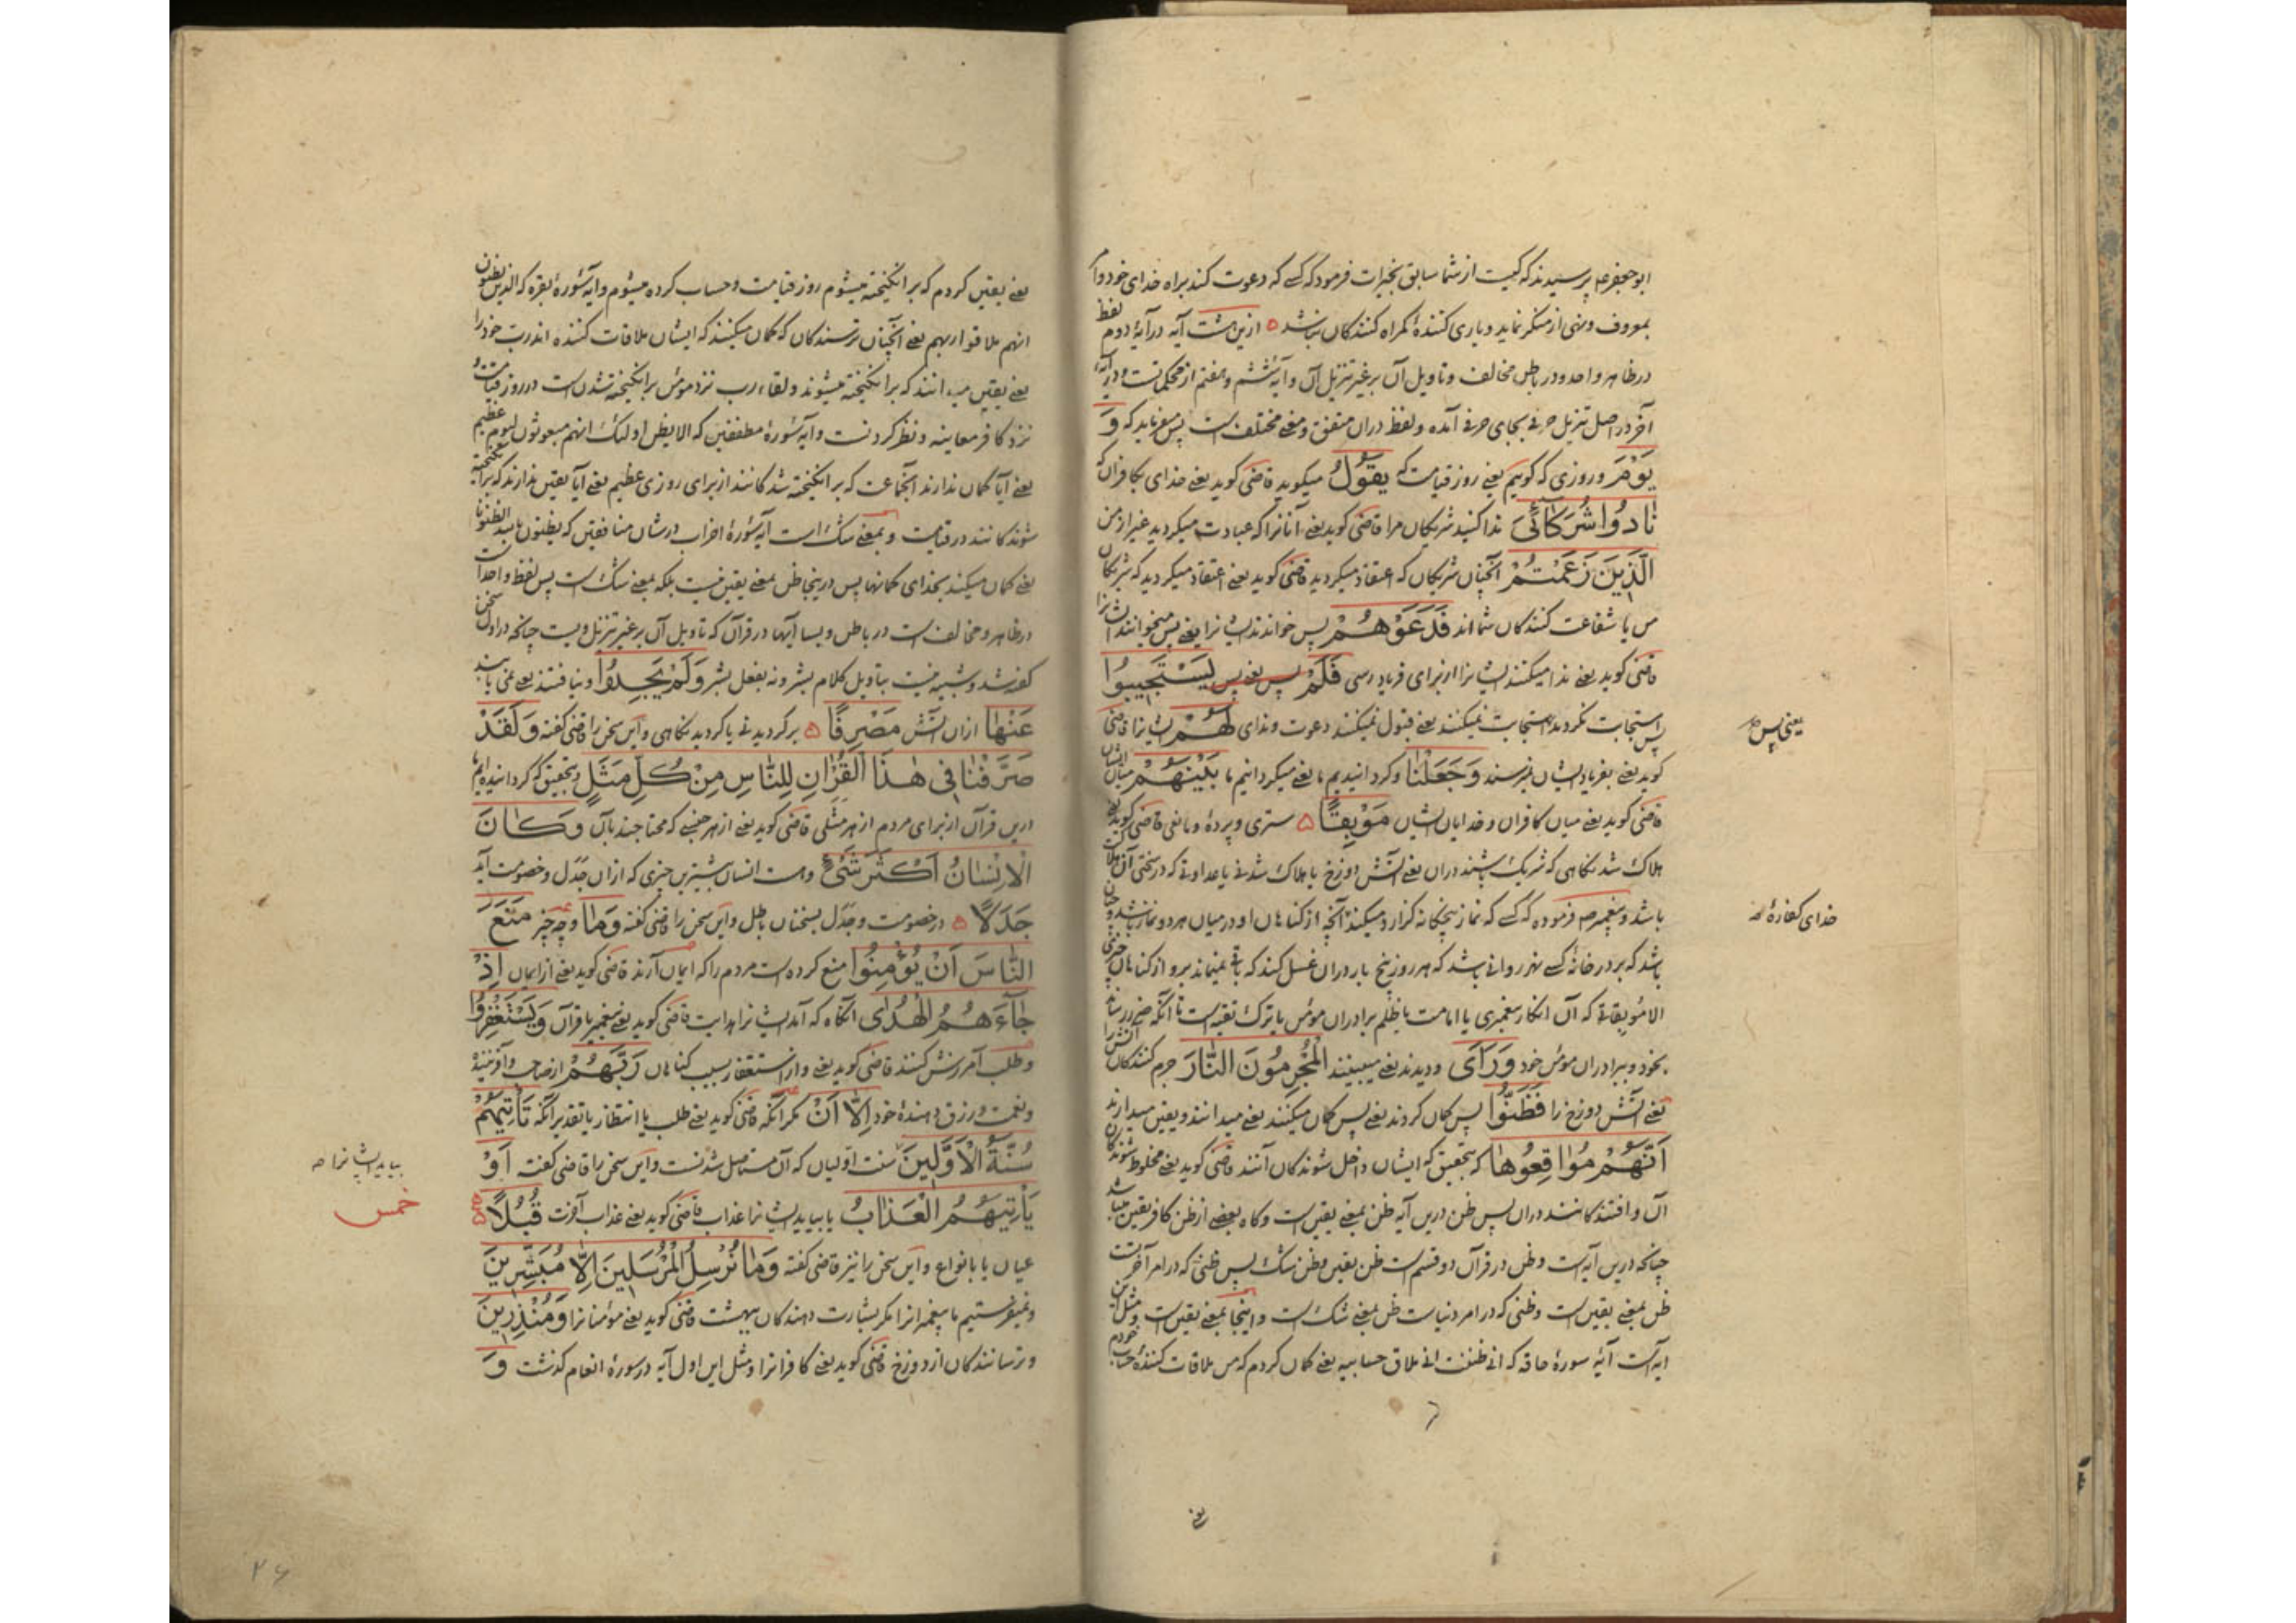 ابوجعفر ع پرسیدند که کیست از شما سابق بخیرات فرمود که کسی که دعوت کند براه خدای خود و امر
بمعروف و نهی از منکر نماید و یاری کنندهٔ گمراه کنندکان نباشد ه ازین هشت آیه در آیهٔ دوم لفظ
در ظاهر واحد و در باطن مخالف و تاویل آن بر غیر تنزیل آن و آیهٔ ششم و هفتم از محکماتست و در آیه
آخر در اصل تنزیل حرفی بجای حرفی آمده و لفظ دران متفق و معنی مختلف است پس میفرماید که وَ
یَوْمَ و روزی که کوییم یعنی روز قیامت که یَقُولُ میکوید قاضی کوید یعنی خدای بکافران که
نٰادُوا شُرَکٰائِیَ ندا کنید شریکان مرا قاضی کوید یعنی آنانرا که عبادت میکردید غیر از من
الَّذِینَ زَعَمْتُمْ آنچنان شریکان که اعتقاد میکردید قاضی کوید یعنی اعتقاد میکردید که شریکان
من یا شفاعت کنندکان شمااند فَدَعَوْهُمْ پس خواندند ایشانرا یعنی پس میخوانند ایشانرا
قاضی کوید یعنی ندا میکنند ایشانرا از برای فریاد رسی فَلَمْ پس یعنی پس یَسْتَجِیبُوا
پس استجابت نکردند استجابت نمیکنند یعنی قبول نمیکنند دعوت و ندای لَهُمْ ایشانرا قاضی
یعنی پس
کوید یعنی بفریاد ایشان نمیرسند وَجَعَلْنٰا و کردانیدیم ما یعنی میکردانیم ما بَیْنَهُمْ میان ایشان
قاضی کوید یعنی میان کافران و خدایان ایشان مَوْبِقًا ه ستری و پردهٔ و مانعی قاضی کوید یعنی
هلاک شدنکاهی که شریک باشند دران یعنی آتش دوزخ یا هلاک شدنی یا عداوتی که در سختی آن هلاکت
باشد و پیغمبر ص فرموده که کسی که نماز پنجکانه کزارد میکند آنچه از کناهان او در میان هر دو نماز باشد و چنان
خدای کفارهٔ
باشد که بر در خانهٔ کسی نهر روانی باشد که هر روز پنج بار دران غسل کند که باقی نمیماند برو از کناهان چیزی
الا موبقاة که آن انکار پیغمبری یا امامت یا ظلم برادران مؤمن یا ترک تقیه است تا آنکه ضرر رساند
بخود و ببرادران مؤمن خود وَرَأَی و دیدند یعنی میبینند الْمُجْرِمُونَ النّٰارَ جرم کنندکان آتش را
یعنی آتش دوزخ را فَظَنُّوا پس کمان کردند یعنی پس کمان میکنند یعنی میدانند و یقین میدارند
أَنَّهُمْ مُوٰاقِعُوهٰا که بتحقیق که ایشان داخل شوندکان آنند قاضی کوید یعنی مخلوط شوندکان
آن و افتندکانند دران پس ظن درین آیه ظن بمعنی یقین است و کاه بعضی از ظن کافر یقین میباشد
چنانکه درین آیه است و ظن در قرآن دو قسم است ظن یقین و ظن شک پس ظنی که در امر آخرتست
ظن بمعنی یقین است و ظنی که در امر دنیاست ظن بمعنی شک است و اینجا بمعنی یقین است و مثل این
آیه است آیهٔ سورهٔ حاقه که انی ظننت انی ملاق حسابیه یعنی کمان کردم که من ملاقات کنندهٔ حساب خودم
یعنی
یعنی یقین کردم که برانکیخته میشوم روز قیامت و حساب کرده میشوم و آیهٔ سورهٔ بقره که الذین یظنون
انهم ملاقوا ربهم یعنی آنچنان ترسندکان که کمان میکنند که ایشان ملاقات کننده اند رب خود را
یعنی یقین میدانند که برانکیخته میشوند و لقاء رب نزد مؤمن برانکیخته شدنست در روز قیامت و
نزد کافر معاینه و نظر کردنست و آیهٔ سورهٔ مطففین که الا یظن اولئک انهم مبعوثون لیوم عظیم
یعنی آیا کمان ندارند آنجماعت که برانکیخته شدکانند از برای روزی عظیم یعنی آیا یقین ندارند که برانکیخته
شوندکانند در قیامت و بمعنی شک است آیهٔ سورهٔ احزاب در شان منافقین که یظنون بالله الظنونا
یعنی کمان میکنند بخدای کمانها پس درینجا ظن بمعنی یقین نیست بلکه بمعنی شک است پس لفظ واحد است
در ظاهر و مخالف است در باطن و بسا آیها در قرآن که تاویل آن بر غیر تنزیل ویست چنانکه در اول سخن
کفته شد و شبیه نیست بتاویل کلام بشر و نه بفعل بشر وَلَمْ یَجِدُوا و نیافتند یعنی نمی یابند
عَنْهٰا ازان آتش مَصْرِفًا ه برکردیدنی یا کردیدنکاهی و این سخن را قاضی کفته وَلَقَدْ
صَرَّفْنٰا فِی هٰذَا الْقُرْآنِ لِلنّٰاسِ مِنْ کُلِّ مَثَلٍ و بتحقیق که کردانیده ایم ما
درین قرآن از برای مردم از هر مثلی قاضی کوید یعنی از هر جنسی که محتاجند بآن وَکٰانَ
الْإِنْسٰانُ أَکْثَرَ شَیْءٍ و هست انسان بیشترین چیزی که ازان جدل و خصومت آید
جَدَلًا ه در خصومت و جدل بسخنان باطل و این سخن را قاضی کفته وَمٰا و چه چیز مَنَعَ
النّٰاسَ أَنْ یُؤْمِنُوا منع کرده است مردم را که ایمان آرند قاضی کوید یعنی از ایمان إِذْ
جٰاءَهُمُ الْهُدٰی آنکاه که آمد ایشانرا هدایت قاضی کوید یعنی پیغمبر یا قرآن وَیَسْتَغْفِرُوا
و طلب آمرزش کنند قاضی کوید یعنی و از استغفار بسبب کناهان رَبَّهُمْ از صاحب و آفریننده
و نعمت و رزق دهندهٔ خود إِلّٰا أَنْ مکر آنکه قاضی کوید یعنی طلب یا انتظار یا تقدیر آنکه تَأْتِیَهُمْ
سُنَّةُ الْأَوَّلِینَ سنت اولیان که آن مستاصل شدنست و این سخن را قاضی کفته أَوْ
بیاید ایشانرا
یَأْتِیَهُمُ الْعَذٰابُ یا بیاید ایشانرا عذاب قاضی کوید یعنی عذاب آخرت قُبُلًا
خمس
عیان یا بانواع و این سخن را نیز قاضی کفته وَمٰا نُرْسِلُ الْمُرْسَلِینَ إِلّٰا مُبَشِّرِینَ
و نمیفرستیم ما پیغمبرانرا مکر بشارت دهندکان ببهشت قاضی کوید یعنی مؤمنانرا وَمُنْذِرِینَ
و ترسانندکان از دوزخ قاضی کوید یعنی کافرانرا و مثل این اول آیه در سورهٔ انعام کذشت وَ